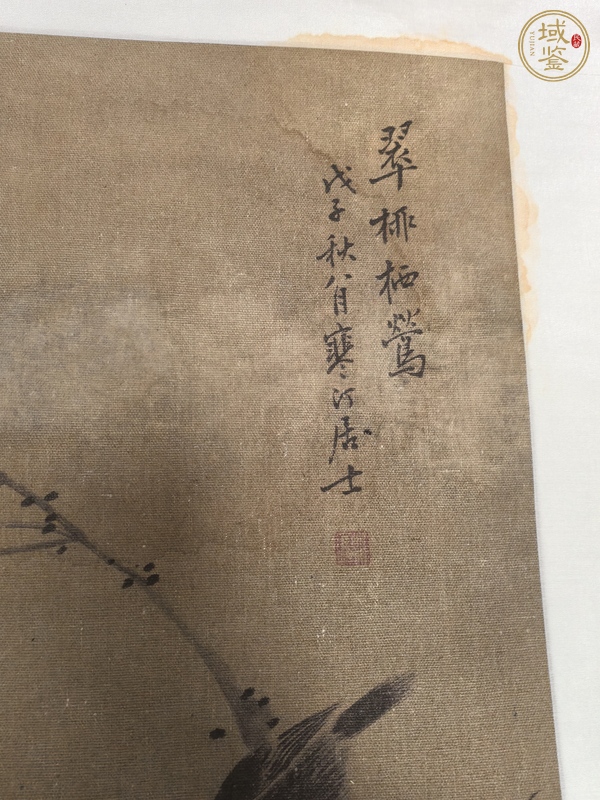 翠柳栖鶯
戊子秋八月寒汀居士
域鉴
YUJIAN